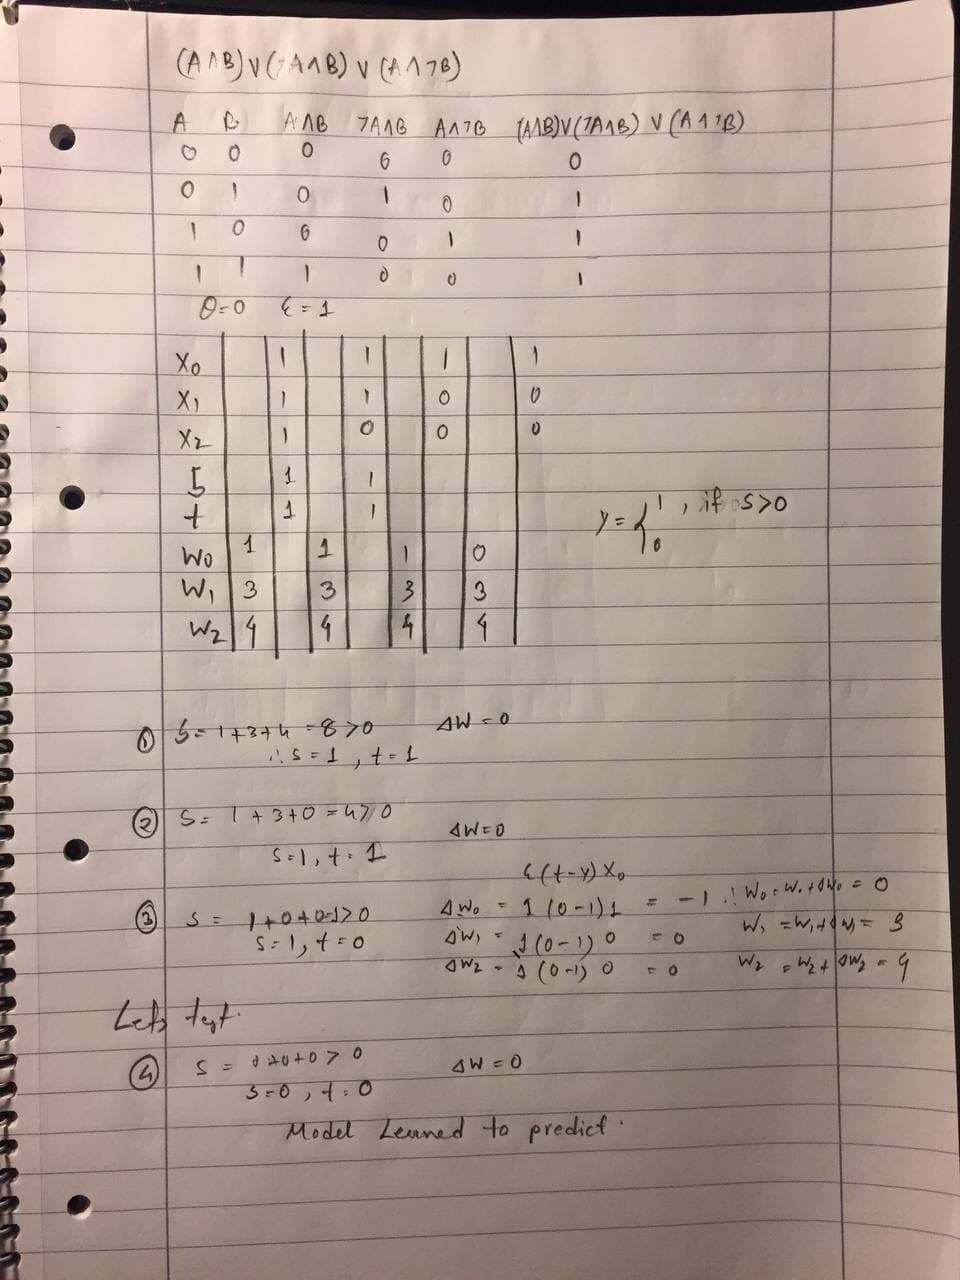 (A∧B)∨(¬A∧B) ∨ (A∧¬B)
A B A∧B ¬A∧B A∧¬B (A∧B)∨(¬A∧B) ∨ (A∧¬B)
0 0 0 0 0 0
0 1 0 1 0 1
1 0 0 0 1 1
1 1 1 0 0 1
θ=0 ε = 1
X0 1 1 1 1
X1 1 1 0 0
X2 1 0 0 0
S 1 1
t 1 1
y = { 1 , if S>0
0
W0 1 1 1 0
W1 3 3 3 3
W2 4 4 4 4
① S = 1+3+4 = 8 >0 ΔW = 0
∴ S = 1 , t = 1
② S = 1 + 3 + 0 = 4 > 0
ΔW = 0
S=1 , t = 1
ε(t-y) X0
③ S = 1+0+0=1>0 ΔW0 = 1 (0-1) 1 = -1 ∴ W0 = W0+ΔW0 = 0
S=1, t=0 ΔW1 = 1(0-1) 0 = 0 W1 = W1+ΔW1 = 3
ΔW2 = 1 (0-1) 0 = 0 W2 = W2+ΔW2 = 4
Lets test.
④ S = 0+0+0 > 0 ΔW = 0
S=0 , t = 0
Model Learned to predict.